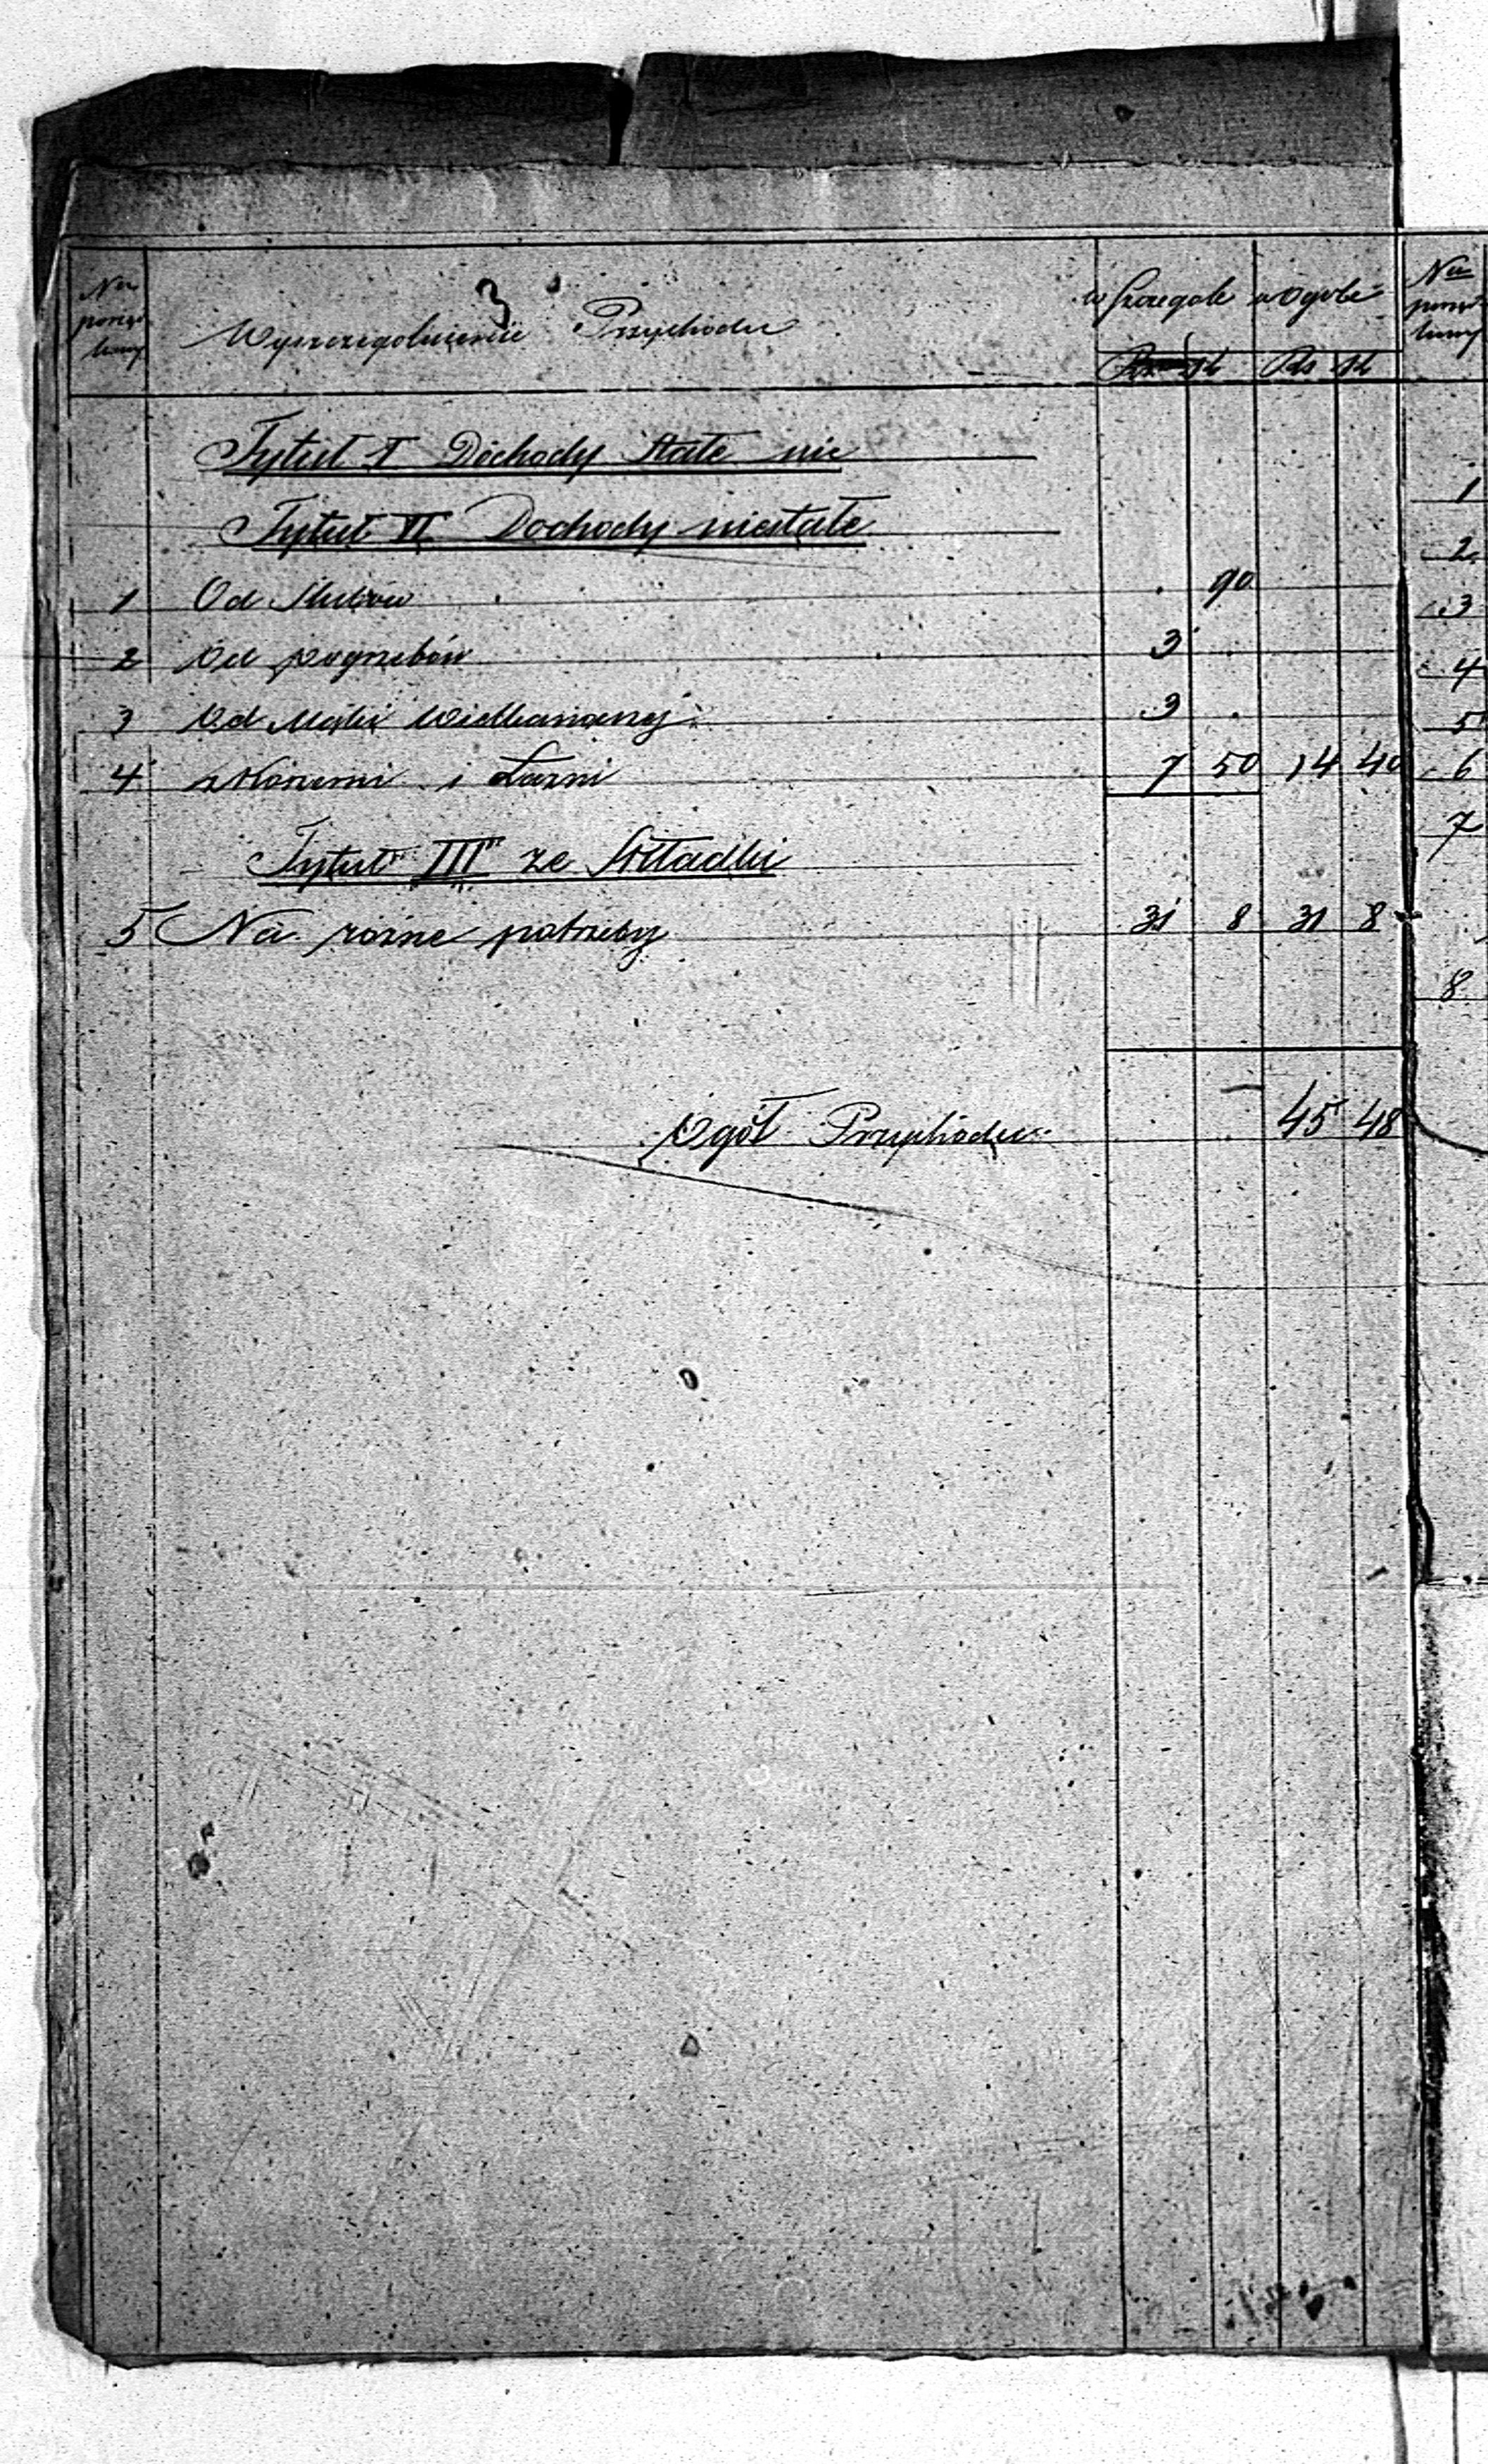 3
No porząd kowy Wyszczegolnienie Przychodu w Szczegole w Ogole No
Rs k Rs k
Tytuł I Dochody stałe nic
Tytuł II Dochody niestałe
1 Od Slubow . 90
2 Od pogrzebów 3 .
3 Od Mąki Wielkanocnej 3 .
4 i Łazni 7 50 14 40
Tytuł III ze Składki
5 Na rózne potrzeby 31 8 31 8
Ogół Przychodu . . 45 48
1
2
3
4
5
6
7
8